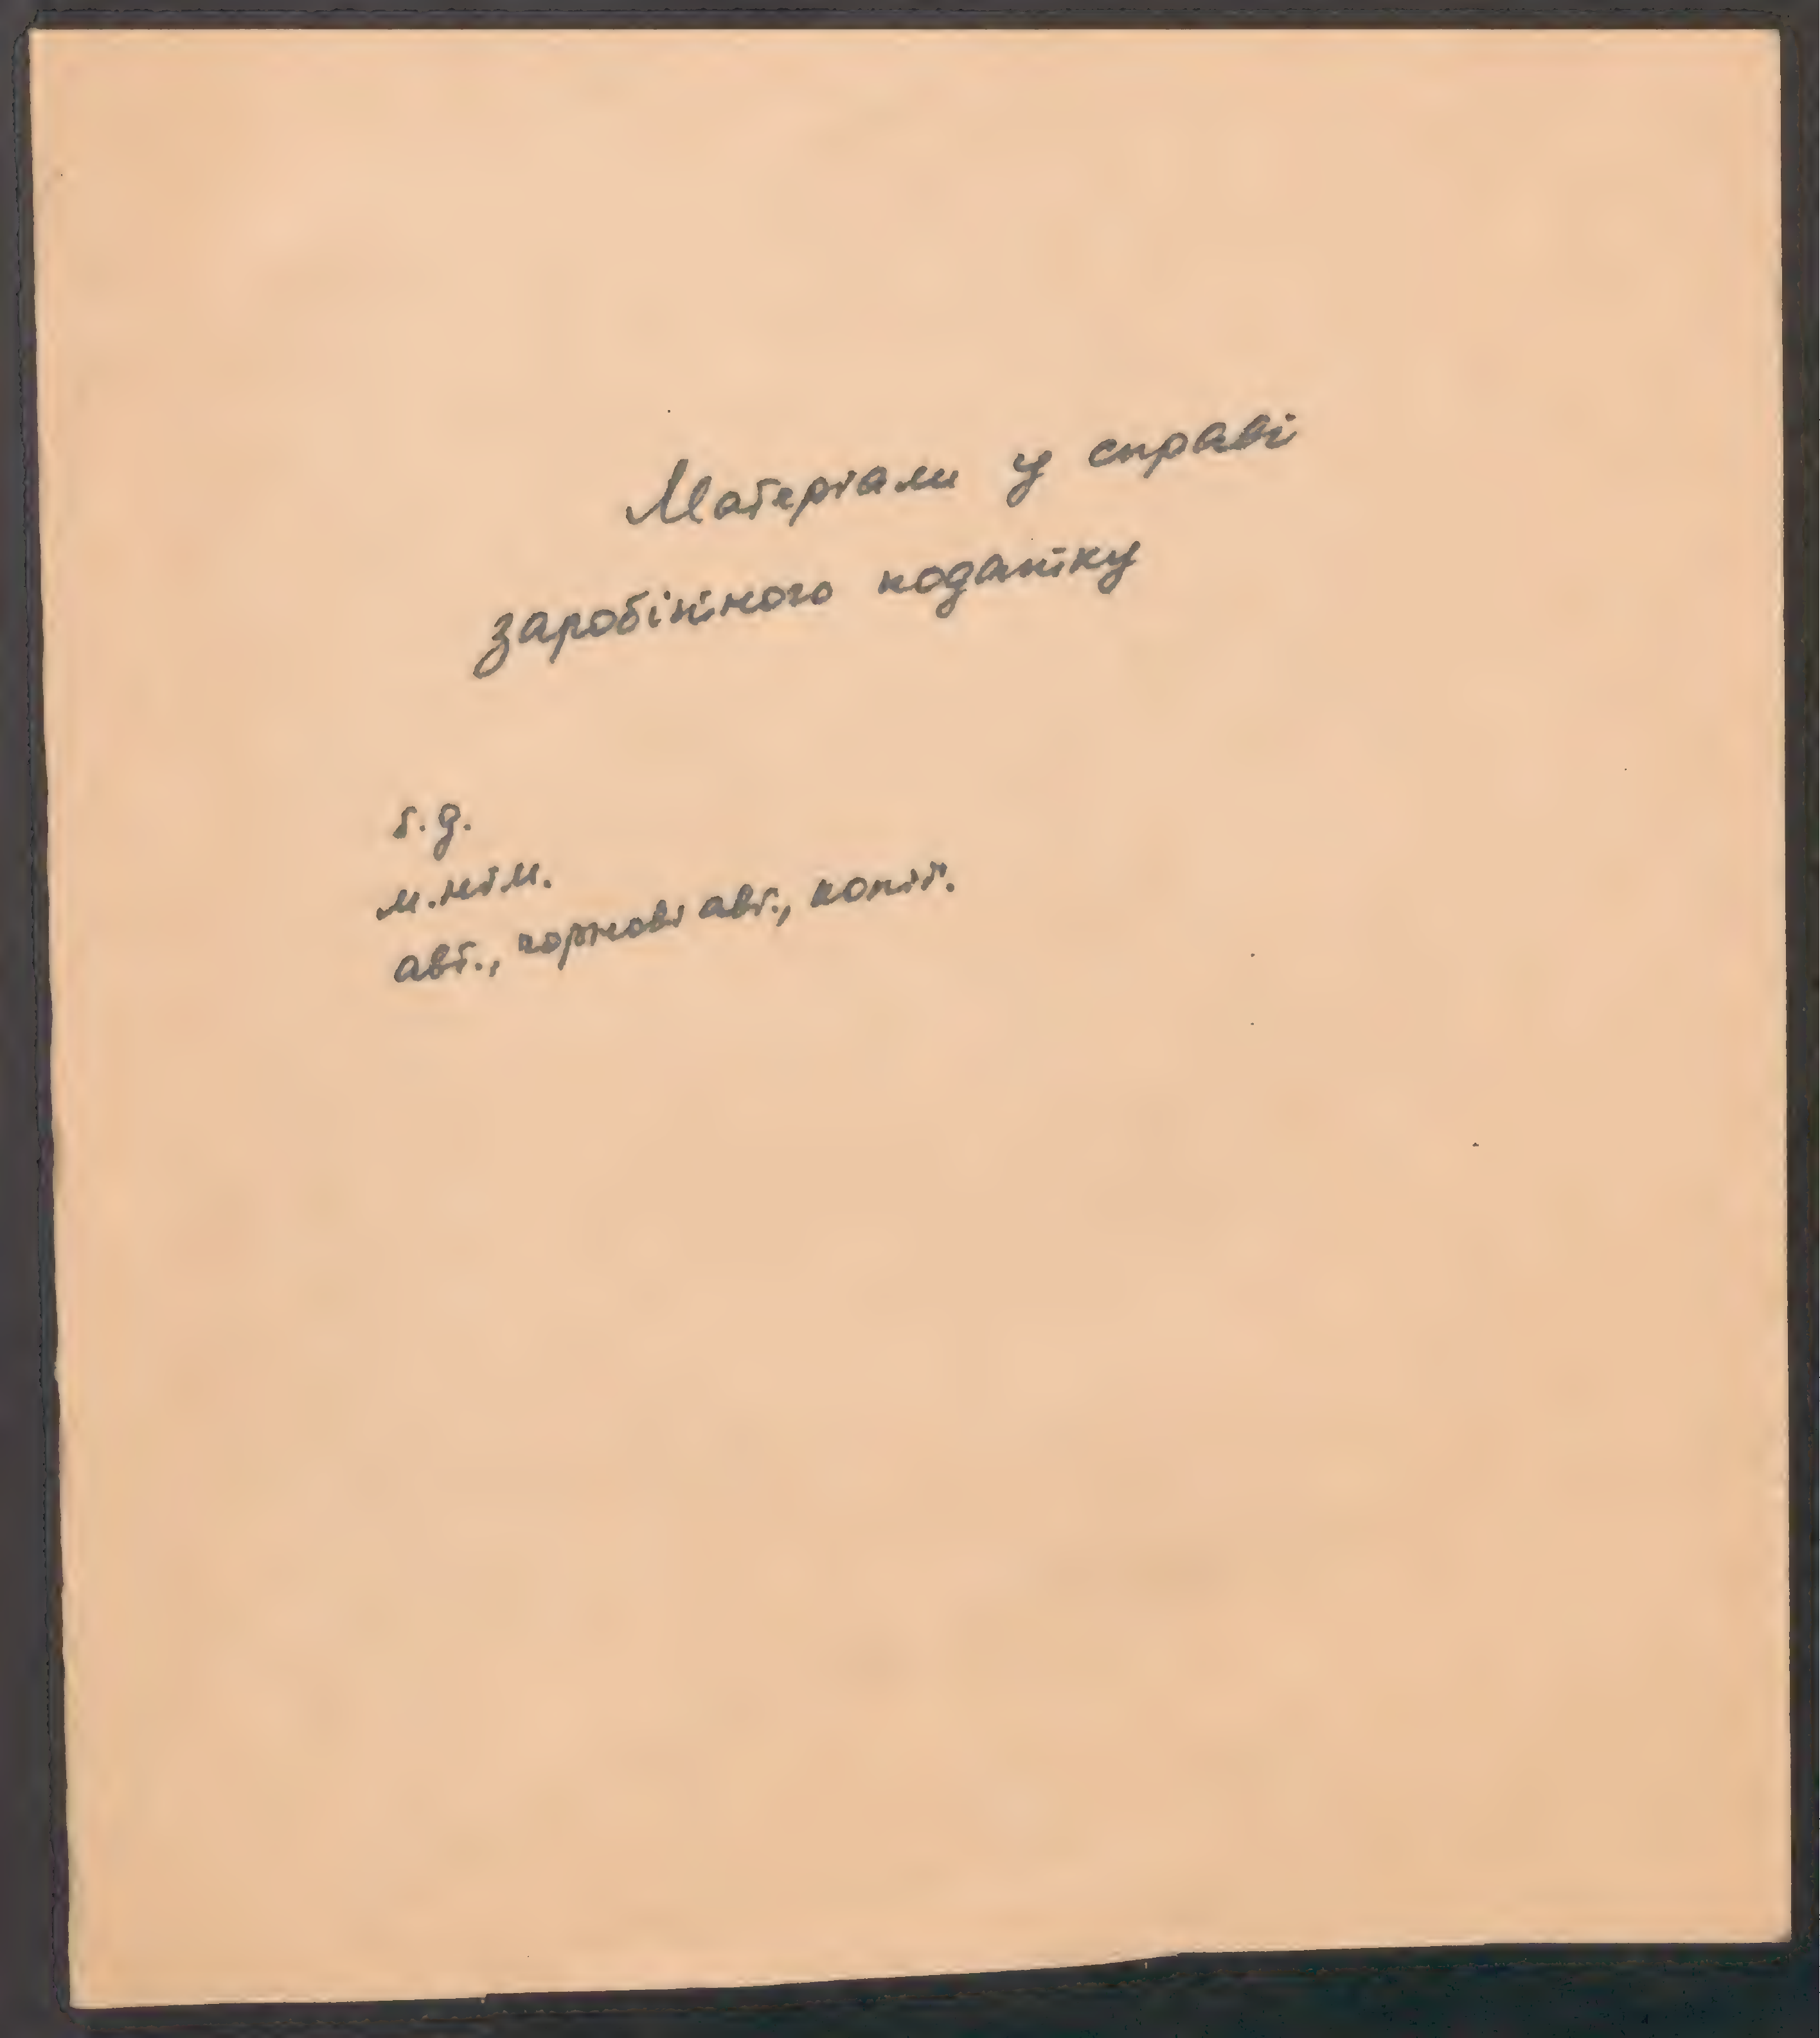 Матеріали у справі
заробітного податку
б.д.
м.нім.
авт., чорнові авт., копії.